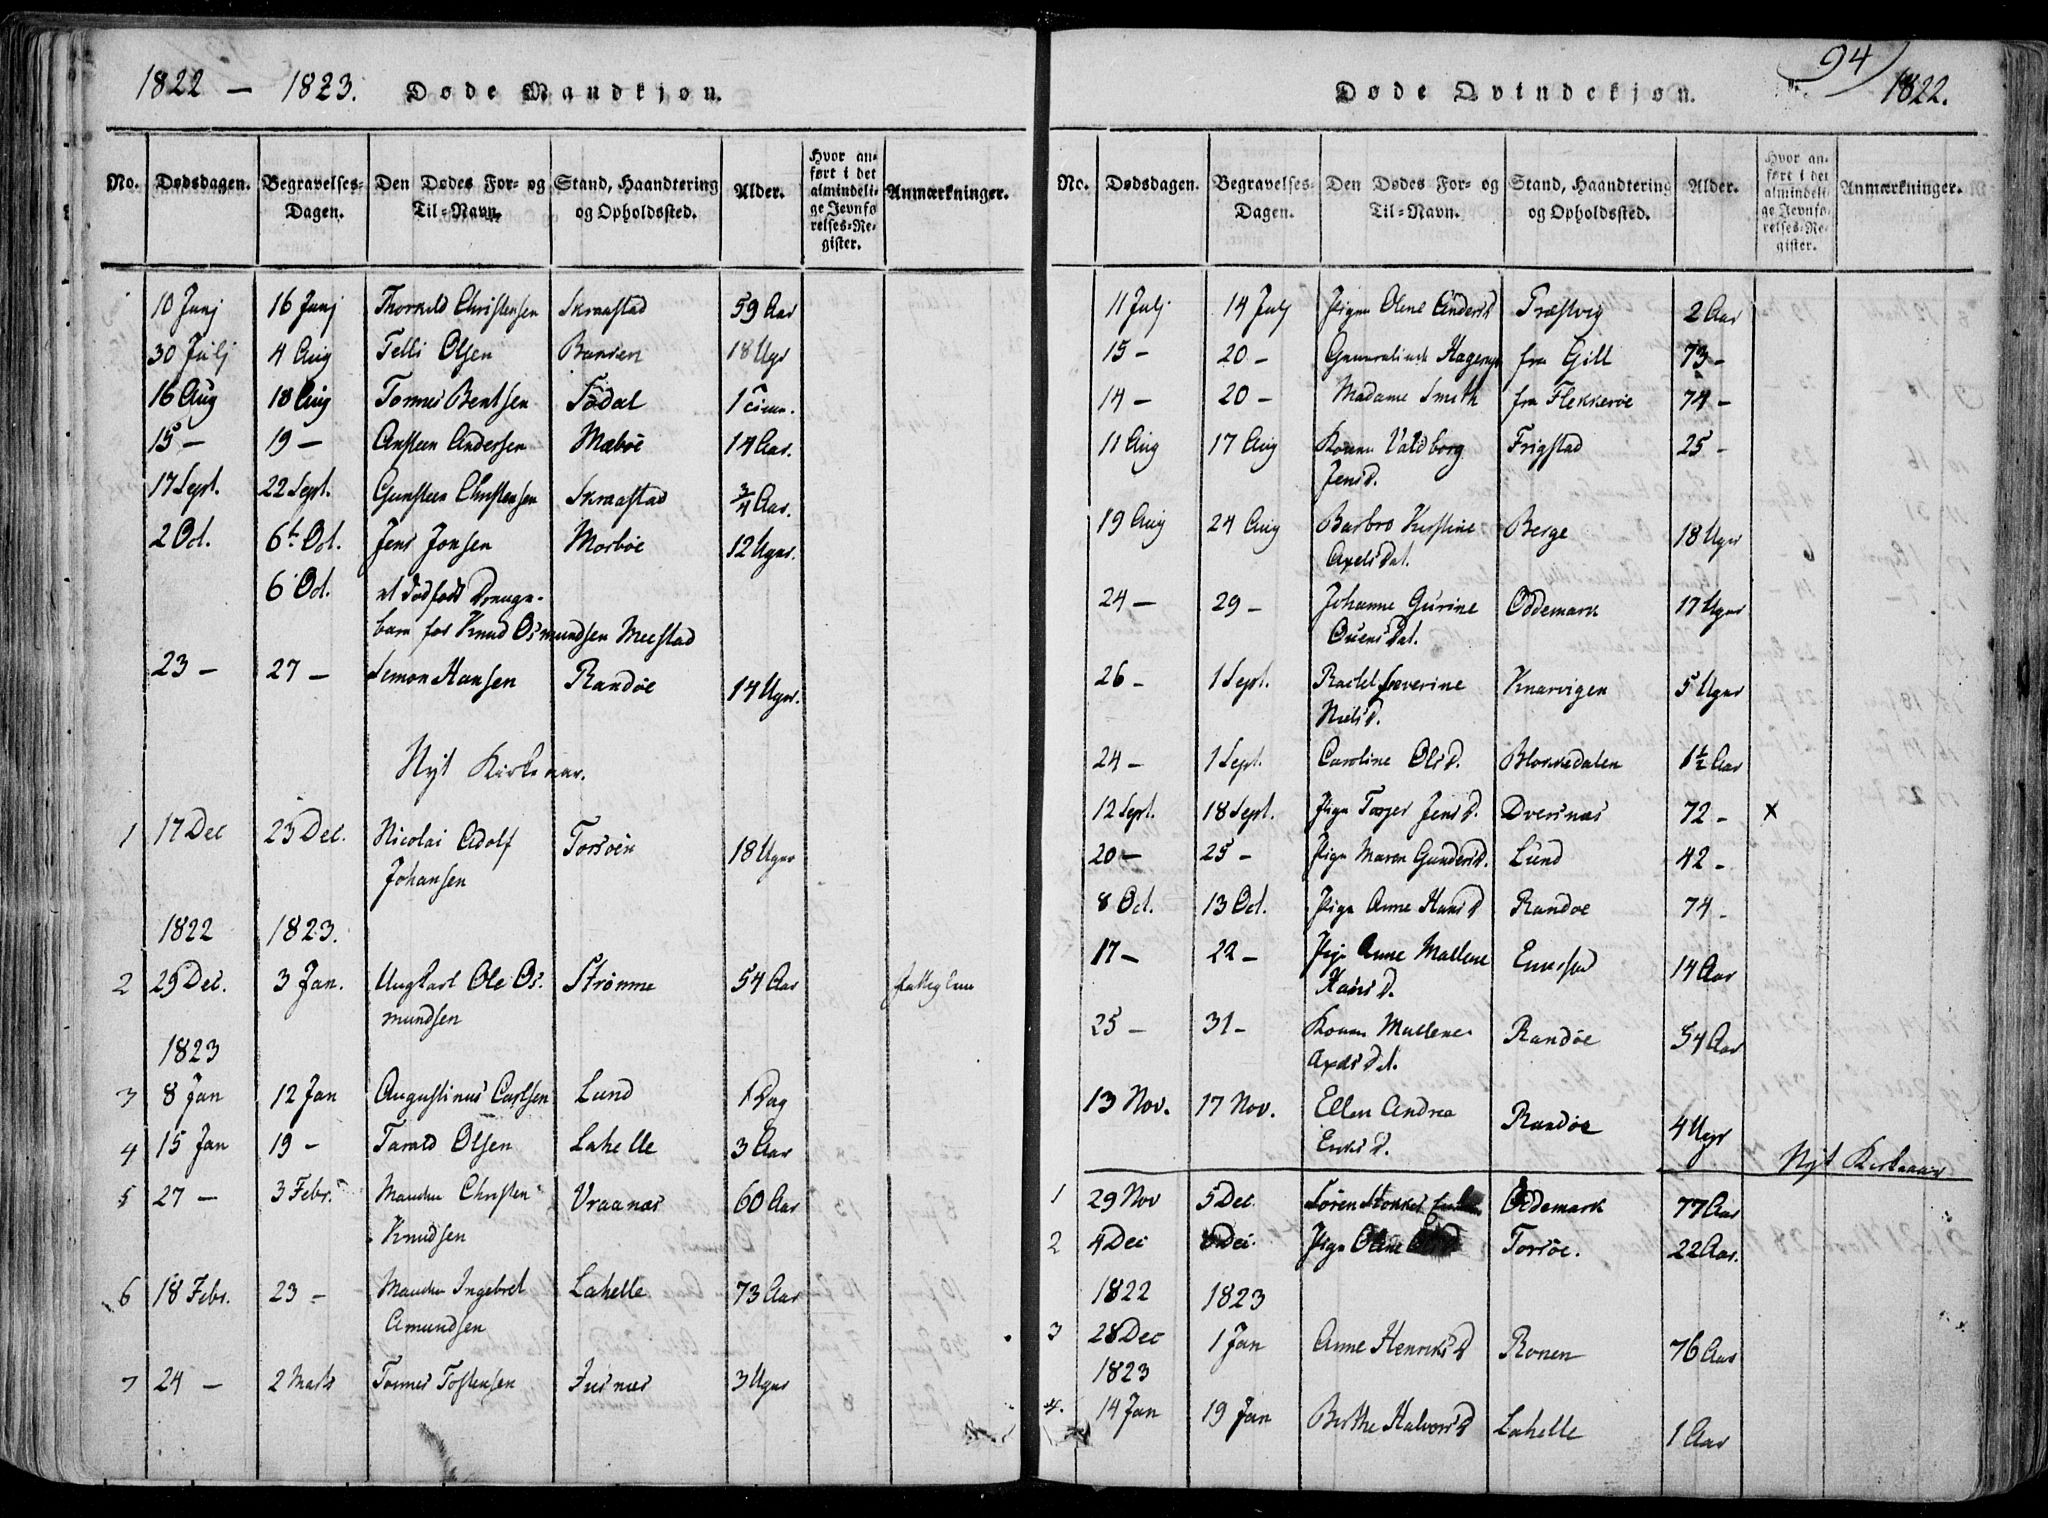 1822 — 1823. Døde Mandkjøn.
No. Dødsdagen. Begravelses-Dagen. Den Dødes For- og Til-Navn. Stand, Haandtering og Opholdssted. Alder. Hvor anført i det almindelige Jevnførelses-Register. Anmærkninger.
10 Junj 16 Junj Thorkild Christensen Skraastad 59 Aar
30 Julj 4 Aug Telli Olsen 18 Ugr
16 Aug 18 Aug Tomes Bentsen Födal 1
15 — 19 — Ansteen Andersen Mæbøe 14 Aar.
17 Sept. 22 Sept. Gunsteen Christensen Skraastad 3/4 Aar.
2 Oct. 6t Oct. Jens Jonsen Morbøe 12 Uger.
6 Oct. et dødfødt Drenge-
barn for Knud Osmundsen Meestad
23 — 27 — Simon Hansen Randøe 14 Uger.
Nyt Kirkeaar.
1 17 Dec 23 Dec. Nicolai Adolf Torsøen 18 Uger
Johansen
1822 1823.
2 29 Dec. 3 Jan. Ungkarl Ole Os- Strømme 54 Aar fattig Lem
mundsen
1823
3 8 Jan 12 Jan Augustinus Carlsen Lund 1 Dag
4 15 Jan 19 — Tarald Olsen Lahelle 3 Aar
5 27 — 3 Febr. Manden Christen Vraanæs 60 Aar
Knudsen
6 18 Febr. 23 — Manden Ingebret Lahelle 73 Aar
Amundsen
7 24 — 2 Marts Tomes Tostensen 3 Uger
94
Døde Qvindekjøn. 1822.
No. Dødsdagen. Begravelses-Dagen. Den Dødes For- og Til-Navn. Stand, Haandtering og Opholdssted. Alder. Hvor anført i det almindelige Jevnførelses-Register. Anmærkninger.
11 Julj 14 Julj Pigen Olene Andersd Præstvig 2 Aar
15 — 20 — Hagerup fra Gill 73 —
14 — 20 — Madame Smith fra Flekkerøe 74 —
11 Aug 17 Aug Konen Valdborg Frigstad 25 —
Jensd.
19 Aug 24 Aug Barbro Kirstine Berge 18 Uger
Axels Dat.
24 — 29 — Johanne Gurine Oddemark 17 Uger
Ouens Dat.
26 — 1 Sept. Rachel Severine Knarvigen 5 Uger
Nielsd.
24 — 1 Sept. Caroline Olsd. Blokkedalen 1½ Aar
12 Sept. 18 Sept. Pige Torjer Jensd. Dversnæs 72 — x
20 — 25 — Pige Maren Gundersd. Lund 42 —
8 Oct. 13 Oct. Pige Anne Hansd Randøe 74 —
17 — 22 — Pige Anne Mallene 14 Aar
Hansd.
25 — 31 — Konen Mallene Randøe 54 Aar
Axels Dat.
13 Nov. 17 Nov. Ellen Andrea Randøe 4 Ugr
Eriksd.
Nyt Kirkeaar
1 29 Nov 5 Dec. Søren Stokkes Oddemark 77 Aar
2 4 Dec 8 Dec. Pige Oline Torsøe. 22 Aar.
1822 1823
3 28 Dec 1 Jan Anne Henriksd Ronen 76 Aar
1823
4. 14 Jan 19 Jan Berthe Halvorsd Lahelle 1 Aar